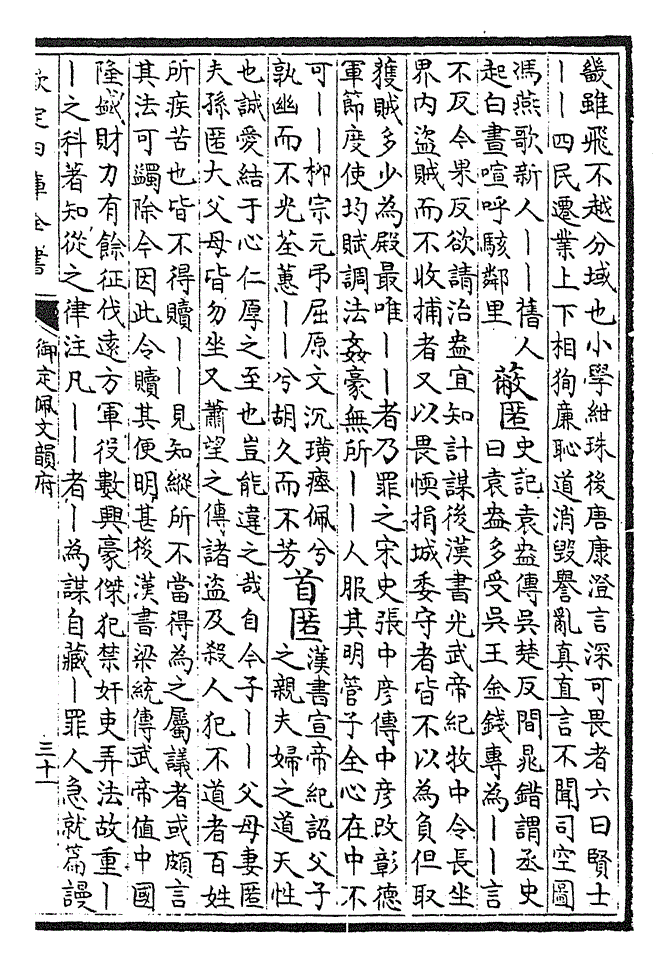 畿雖飛不越分域也小學紺珠後唐康澄言深可畏者六曰賢士
——四民遷業上下相狥廉恥道消毀譽亂真直言不聞司空圖
馮燕歌新人——舊人
起白晝喧呼駭鄰里
蔽匿
史記袁盎傳吳楚反間晁錯謂丞史
曰袁盎多受吳王金錢專為——言
不反今果反欲請治盎宜知計謀後漢書光武帝紀牧中令長坐
界内盜賊而不收捕者又以畏愞捐城委守者皆不以為負但取
獲賊多少為殿最唯——者乃罪之宋史張中彦傳中彦改彰德
軍節度使均賦調法姦豪無所——人服其明管子全心在中不
可——柳宗元弔屈原文沉璜瘞佩兮
孰幽而不光荃蕙——兮胡久而不芳
首匿
漢書宣帝紀詔父子
之親夫婦之道天性
也誠愛結于心仁厚之至也豈能違之哉自今子——父母妻匿
夫孫匿大父母皆勿坐又蕭望之傳諸盜及殺人犯不道者百姓
所疾苦也皆不得贖——見知縱所不當得為之屬議者或頗言
其法可蠲除今因此令贖其便明甚後漢書梁統傳武帝值中國
隆盛財力有餘征伐遠方軍役數興豪傑犯禁奸吏弄法故重—
—之科著知從之律注凡——者—為謀自藏—罪人急就篇謾
欽定四庫全書
御定佩文韻府
三十一